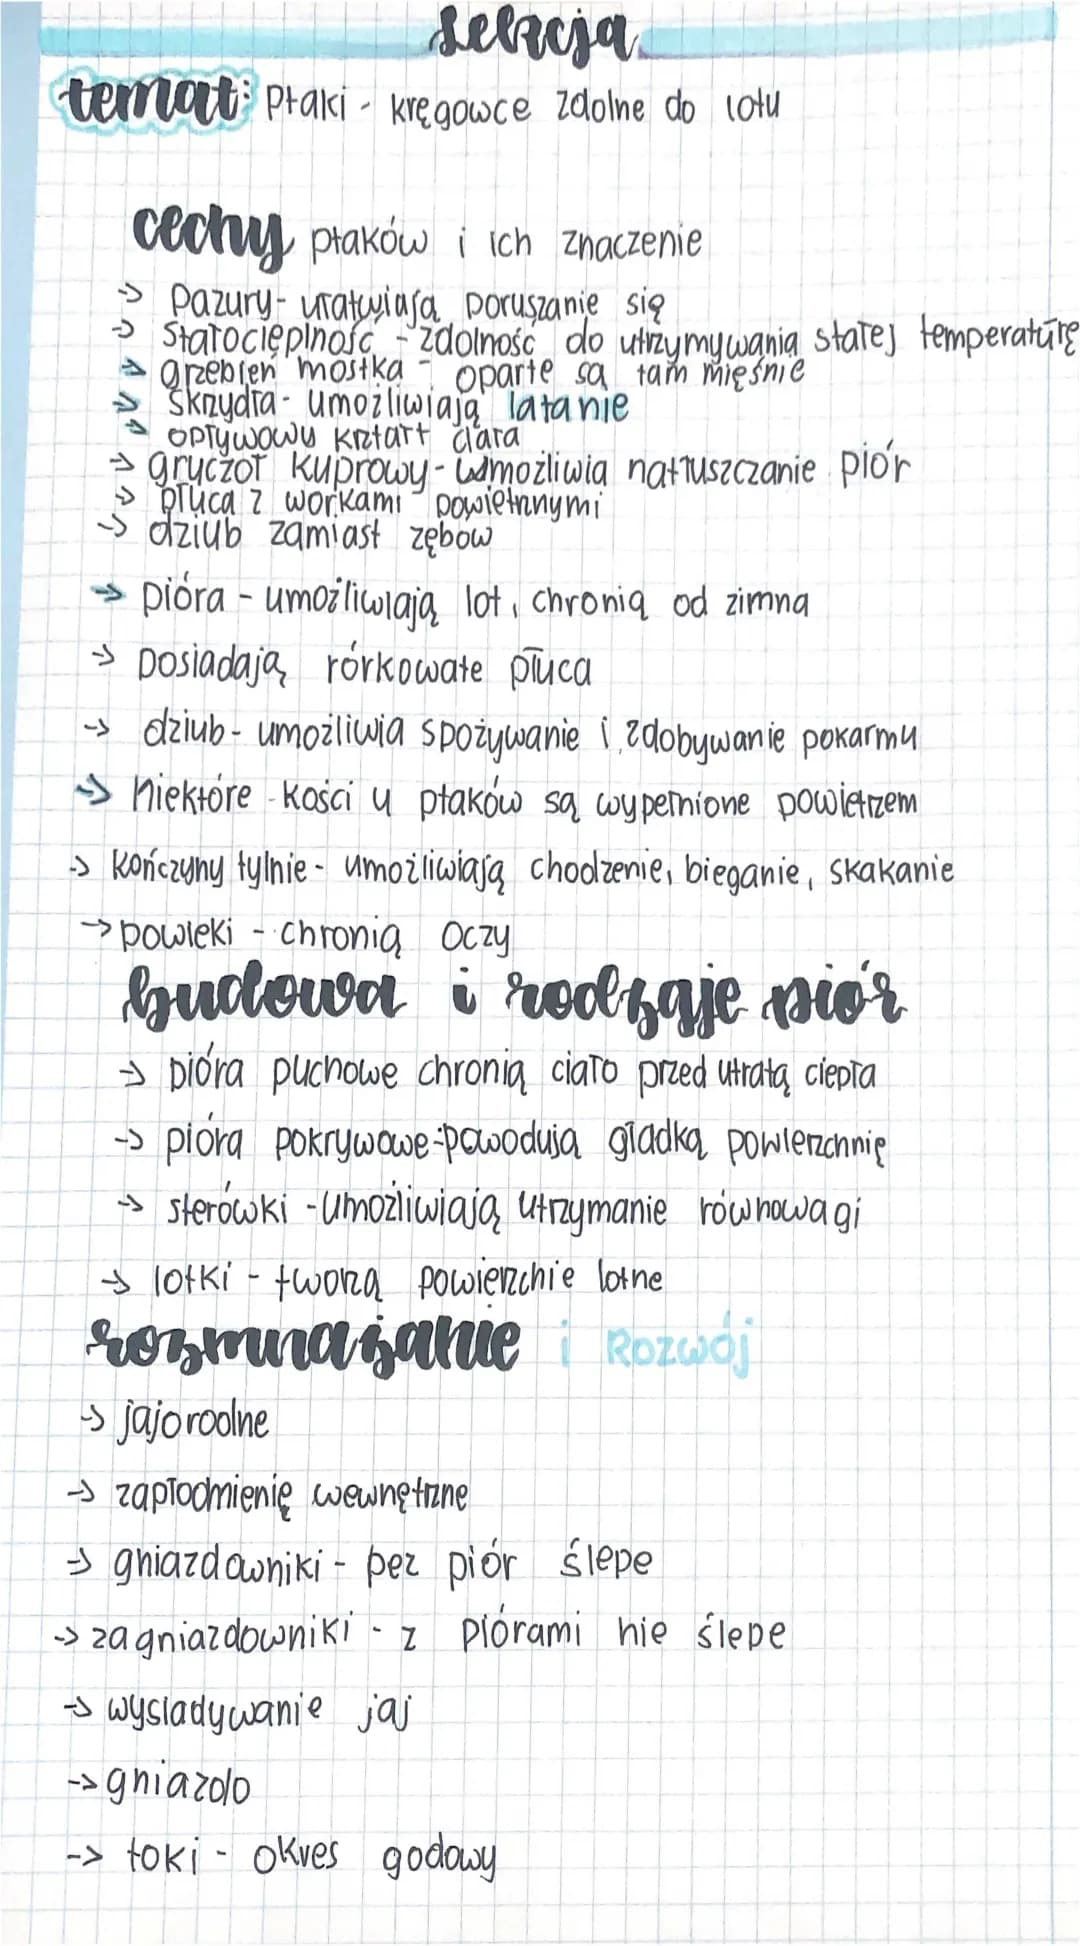 Lekcja
temat: Ptaki - kręgowce zdolne do lotu
cechy ptaków i ich znaczenie
-> Pazury - ułatwiają poruszanie się
-> Stałocieplność - zdolność do utrzymywania stałej temperaturę
-> grzebień mostka - oparte są tam mięśnie
-> skrzydła - umożliwiają latanie
-> opływowy kształt ciała
-> gruczoł kuprowy - umożliwia natłuszczanie piór
-> płuca z workami powietrznymi
-> dziub zamiast zębów
-> pióra - umożliwiają lot, chronią od zimna
-> posiadają rórkowate płuca
-> dziub - umożliwia spożywanie i zdobywanie pokarmu
-> niektóre kości u ptaków są wypełnione powietrzem
-> kończyny tylnie - umożliwiają chodzenie, bieganie, skakanie
-> powieki - chronią oczy
budowa i rodzaje piór
-> pióra puchowe chronią ciało przed utratą ciepła
-> pióra pokrywowe - powodują gładką powierzchnię
-> sterówki - umożliwiają utrzymanie równowagi
-> lotki - tworzą powierzchie lotne
rozmnażanie i Rozwój
-> jajorodne
-> zapłodmienię wewnętrzne
-> gniazdowniki - bez piór ślepe
-> zagniazdowniki - z piórami nie ślepe
-> wysiadywanie jaj
-> gniazdo
-> toki - okres godowy